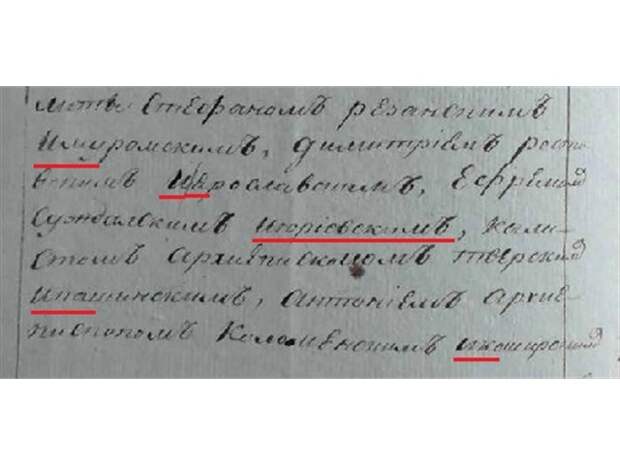 литы Стефаномъ резанскимъ
Имуромскимъ, димитріемъ росто
вскимъ Иярославскимъ, Ефремомъ
Суждалскимъ июріевскимъ, кали-
стомъ архиепископомъ тверскимъ
Икашинскимъ, антоніемъ архие-
пископомъ Коломенскимъ икоширскимъ